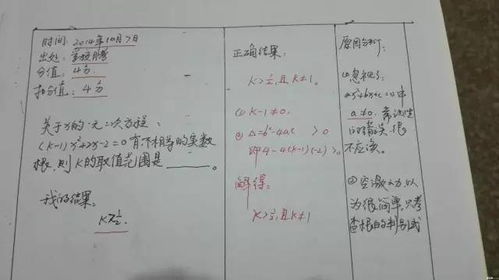 时间：2014年10月7日
出处：
分值：4分
扣分值：4分
关于x的一元二次方程：
(k-1)x²+2x-2=0有不相等的实数
根，则k的取值范围是______。
我的结果：
k>½.
正确结果：
k>½，且k≠1。
① k-1≠0，
② Δ=b²-4ac>0
即4-4(k-1)(-2)>0
解得：
k>½，且k≠1
原因分析：
①忽视了
ax²+bx+c=0中
a≠0，
的错误，很
不应该。
②
为很简单，只考
查根的判别式